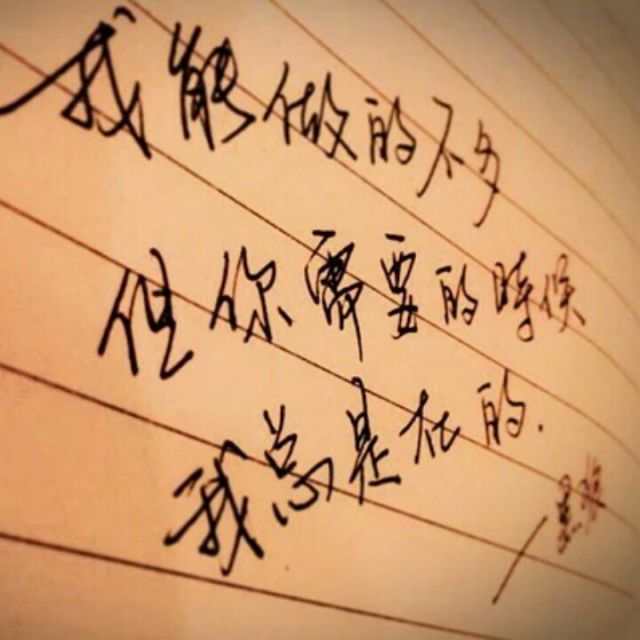 我能做的不多
但你需要的時候
我总是在的.